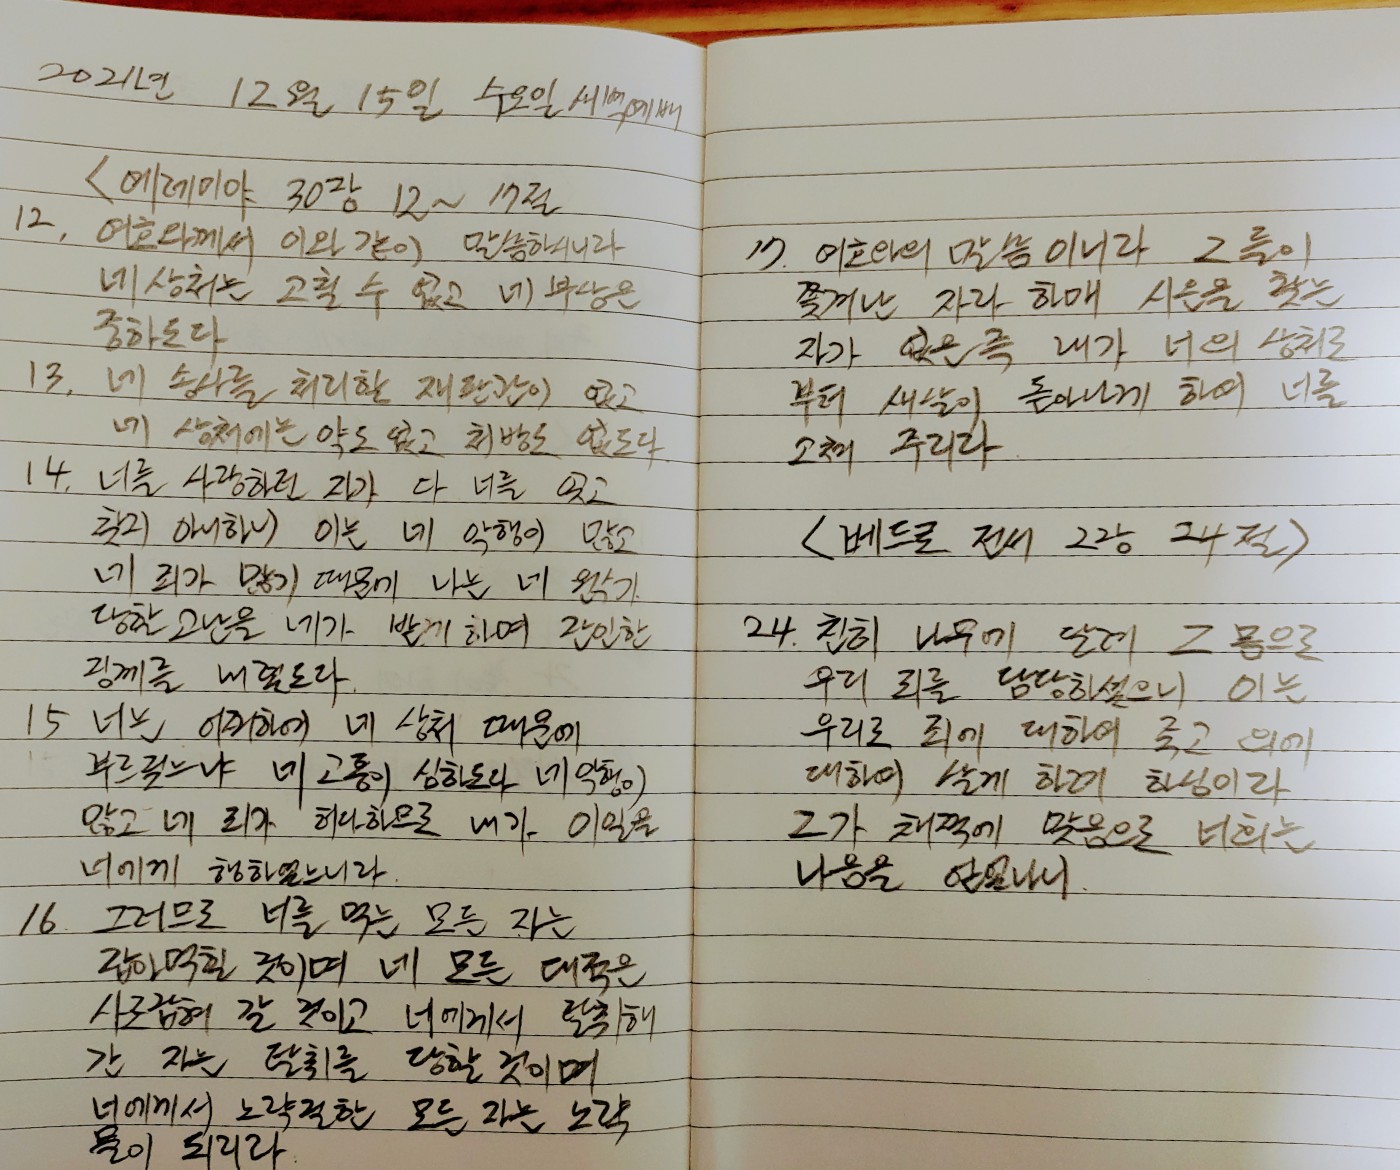 2021년 12월 15일 수요일 새벽예배
<예레미야 30장 12~17절
12. 여호와께서 이와 같이 말씀하시니라
네 상처는 고칠 수 없고 네 부상은
중하도다
13. 네 송사를 처리할 재판관이 없고
네 상처에는 약도 없고 처방도 없도다
14. 너를 사랑하던 자가 다 너를 잊고
찾지 아니하니 이는 네 악행이 많고
네 죄가 많기 때문에 나는 네 원수가
당할 고난을 네가 받게 하며 잔인한
징계를 내렸도다.
15 너는 어찌하여 네 상처 때문에
부르짖느냐 네 고통이 심하도다 네 악행이
많고 네 죄가 허다하므로 내가 이 일을
너에게 행하였느니라.
16 그러므로 너를 먹는 모든 자는
잡아먹힐 것이며 네 모든 대적은
사로잡혀 갈 것이고 너에게서 탈취해
간 자는 탈취를 당할 것이며
너에게서 노략질한 모든 자는 노략
물이 되리라
17. 여호와의 말씀이니라 그들이
쫓겨난 자라 하매 시온을 찾는
자가 없은즉 내가 너의 상처로
부터 새살이 돋아나게 하여 너를
고쳐 주리라
<베드로 전서 2장 24절>
24. 친히 나무에 달려 그 몸으로
우리 죄를 담당하셨으니 이는
우리로 죄에 대하여 죽고 의에
대하여 살게 하려 하심이라
그가 채찍에 맞음으로 너희는
나음을 얻었나니.